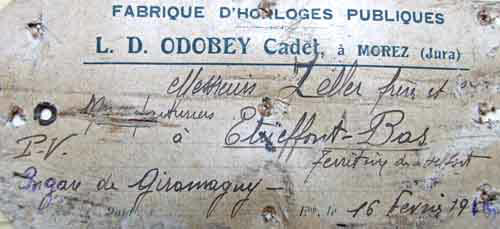 FABRIQUE D'HORLOGES PUBLIQUES
L. D. ODOBEY Cadet, à MOREZ (Jura)
Messieurs Zeller frères et
à Etueffont-Bas
P.V. Territoire de Belfort
En gare de Giromagny —
le 16 Février 19